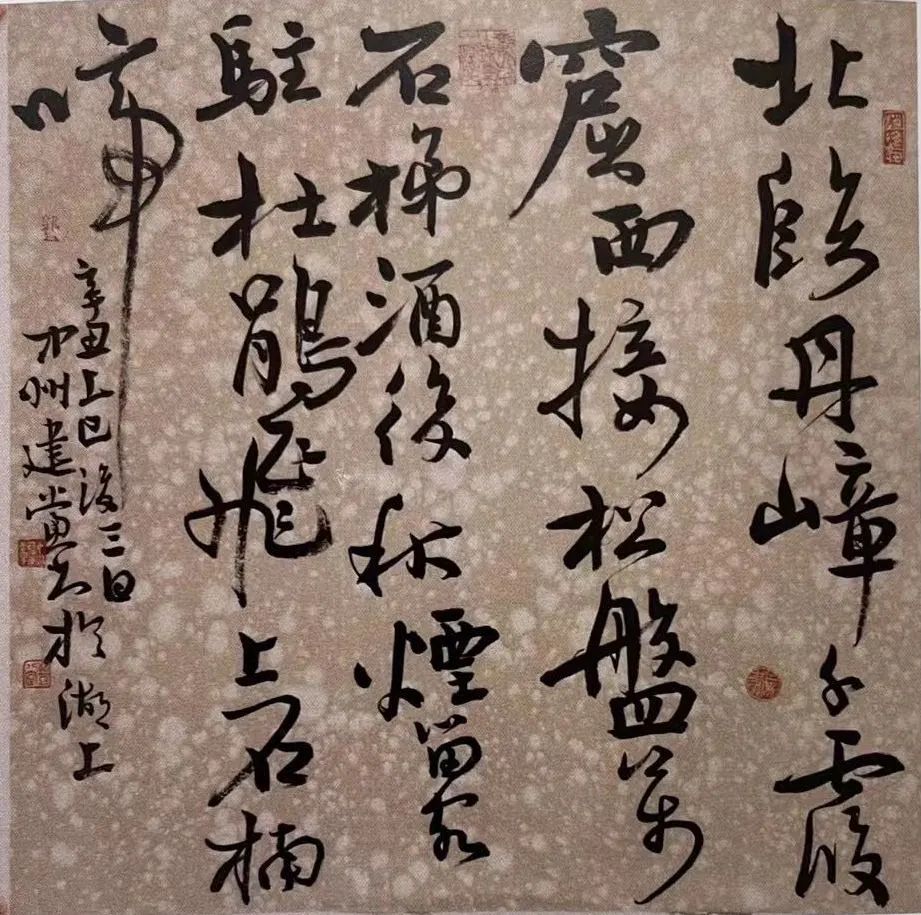 北臨丹嶂千霞
窟西接松盤萬
石梯酒後秋煙留客
駐杜鵑飛上石楠
啼
辛丑上巳後三日
州建黨書於湖上